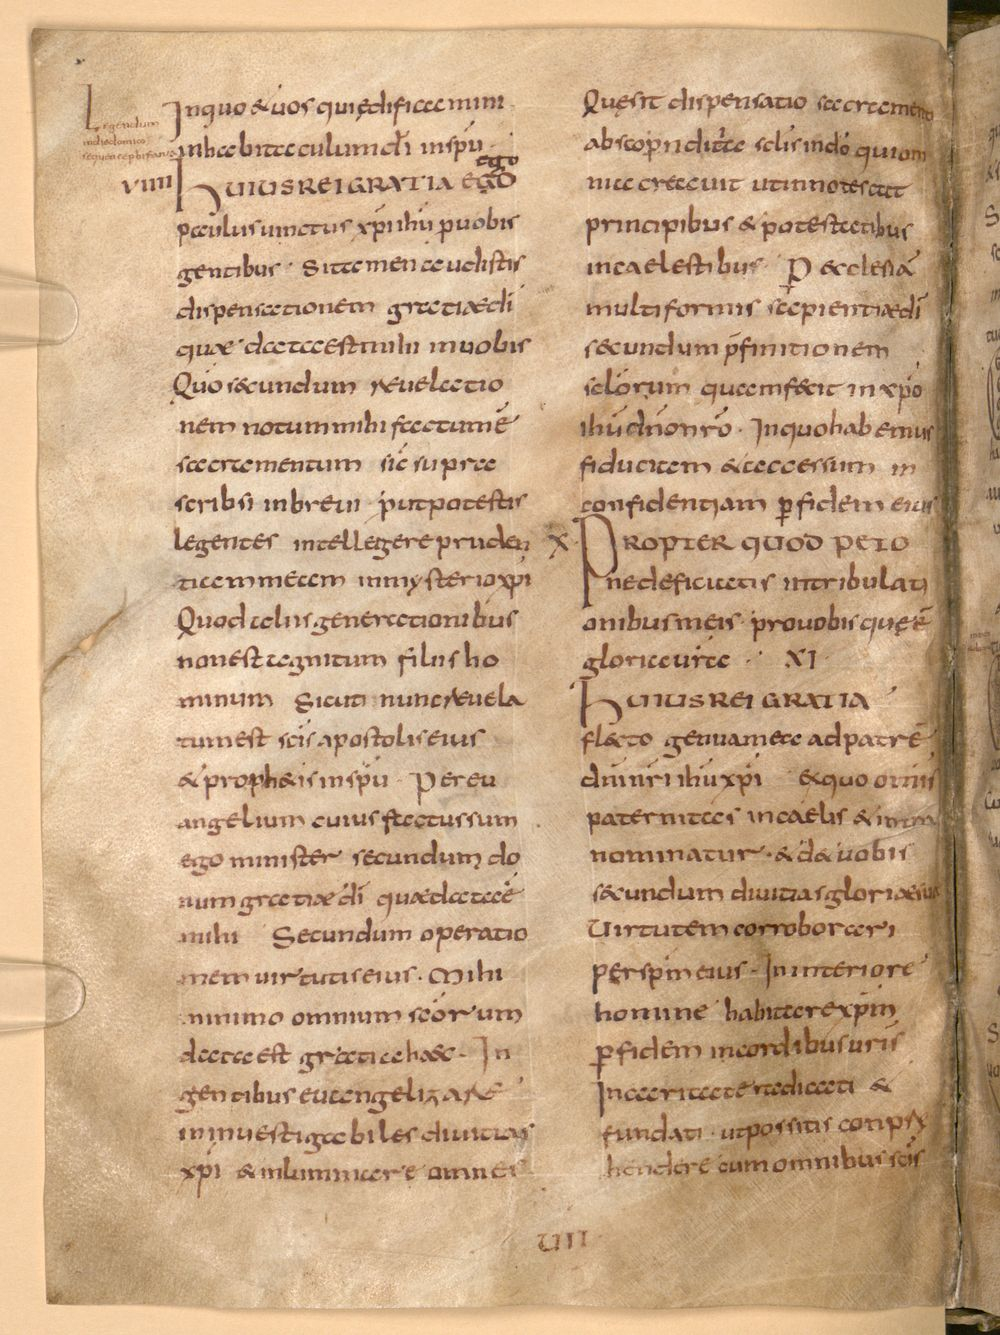 Legendum
in die domico
sequente epifania
Inquo &uos quiędificamini
inhabitaculumdī inspū
ego
VIIII HUIUSREIGRATIA EGO
paulusuinctus xp̄iihū p̱uobis
gentibus · Sitamenaudistis
dispensationem gratiædī
quæ dataestmihi inuobis
Quōsecundum reuelatio
nem notummihifactumē
sacramentum sic̄ supra
scribsi inbreui · p̱utpotestis
legentes intellegere pruden
tiammeam inmysterioxp̄i
Quod aliisgenerationibus
nonestagnitum filiisho
minum Sicuti nuncreuela
tumest sc̄isapostoliseius
&proph&isinspū · Pereu
angelium cuiusfactussum
ego minister secundum do
num gratiædī quædataē
mihi Secundum operatio
nem uirtutiseius · Mihi
minimo omnium sc̄orum
dataest gratiahaec · In
gentibus euangelizare
ininuestigabiles diuitias
xp̄i &inluminare omnes
Quęsit dispensatio sacramenti
abscop̱nditæ sc̄lisindō quiom
nia creauit utinnotescat
principibus &potestatibus
incaelestibus · P̱ &eclesiā
multiformis sapientiædī
secundum p̄finitionem
sc̄lorum quamfecit inxp̄o
ihūdn̄onr̄o · Inquohabemus
fiduciam &accessum in
confidentiam p̱fidem eius
X PROPTER QUOD PETO
nedeficiatis intribulati
onibusmeis prouobis quęē
gloriaur̄a · XI ·
HUIUSREI GRATIA
flecto genuamea adpatrē
dn̄inr̄iihūxp̄i exquo omnis
paternitas incaelis &interra
nominatur · &d&uobis
secundum diuitiasgloriæsuę
Uirtutem corroborari
perspm̄eius · Ininteriore
homine habitarexpm̄
p̱fidem incordibusur̄is
Incaritate radicati &
fundati · utpossitis conpræ
hendere cumomnibussc̄is
VIII